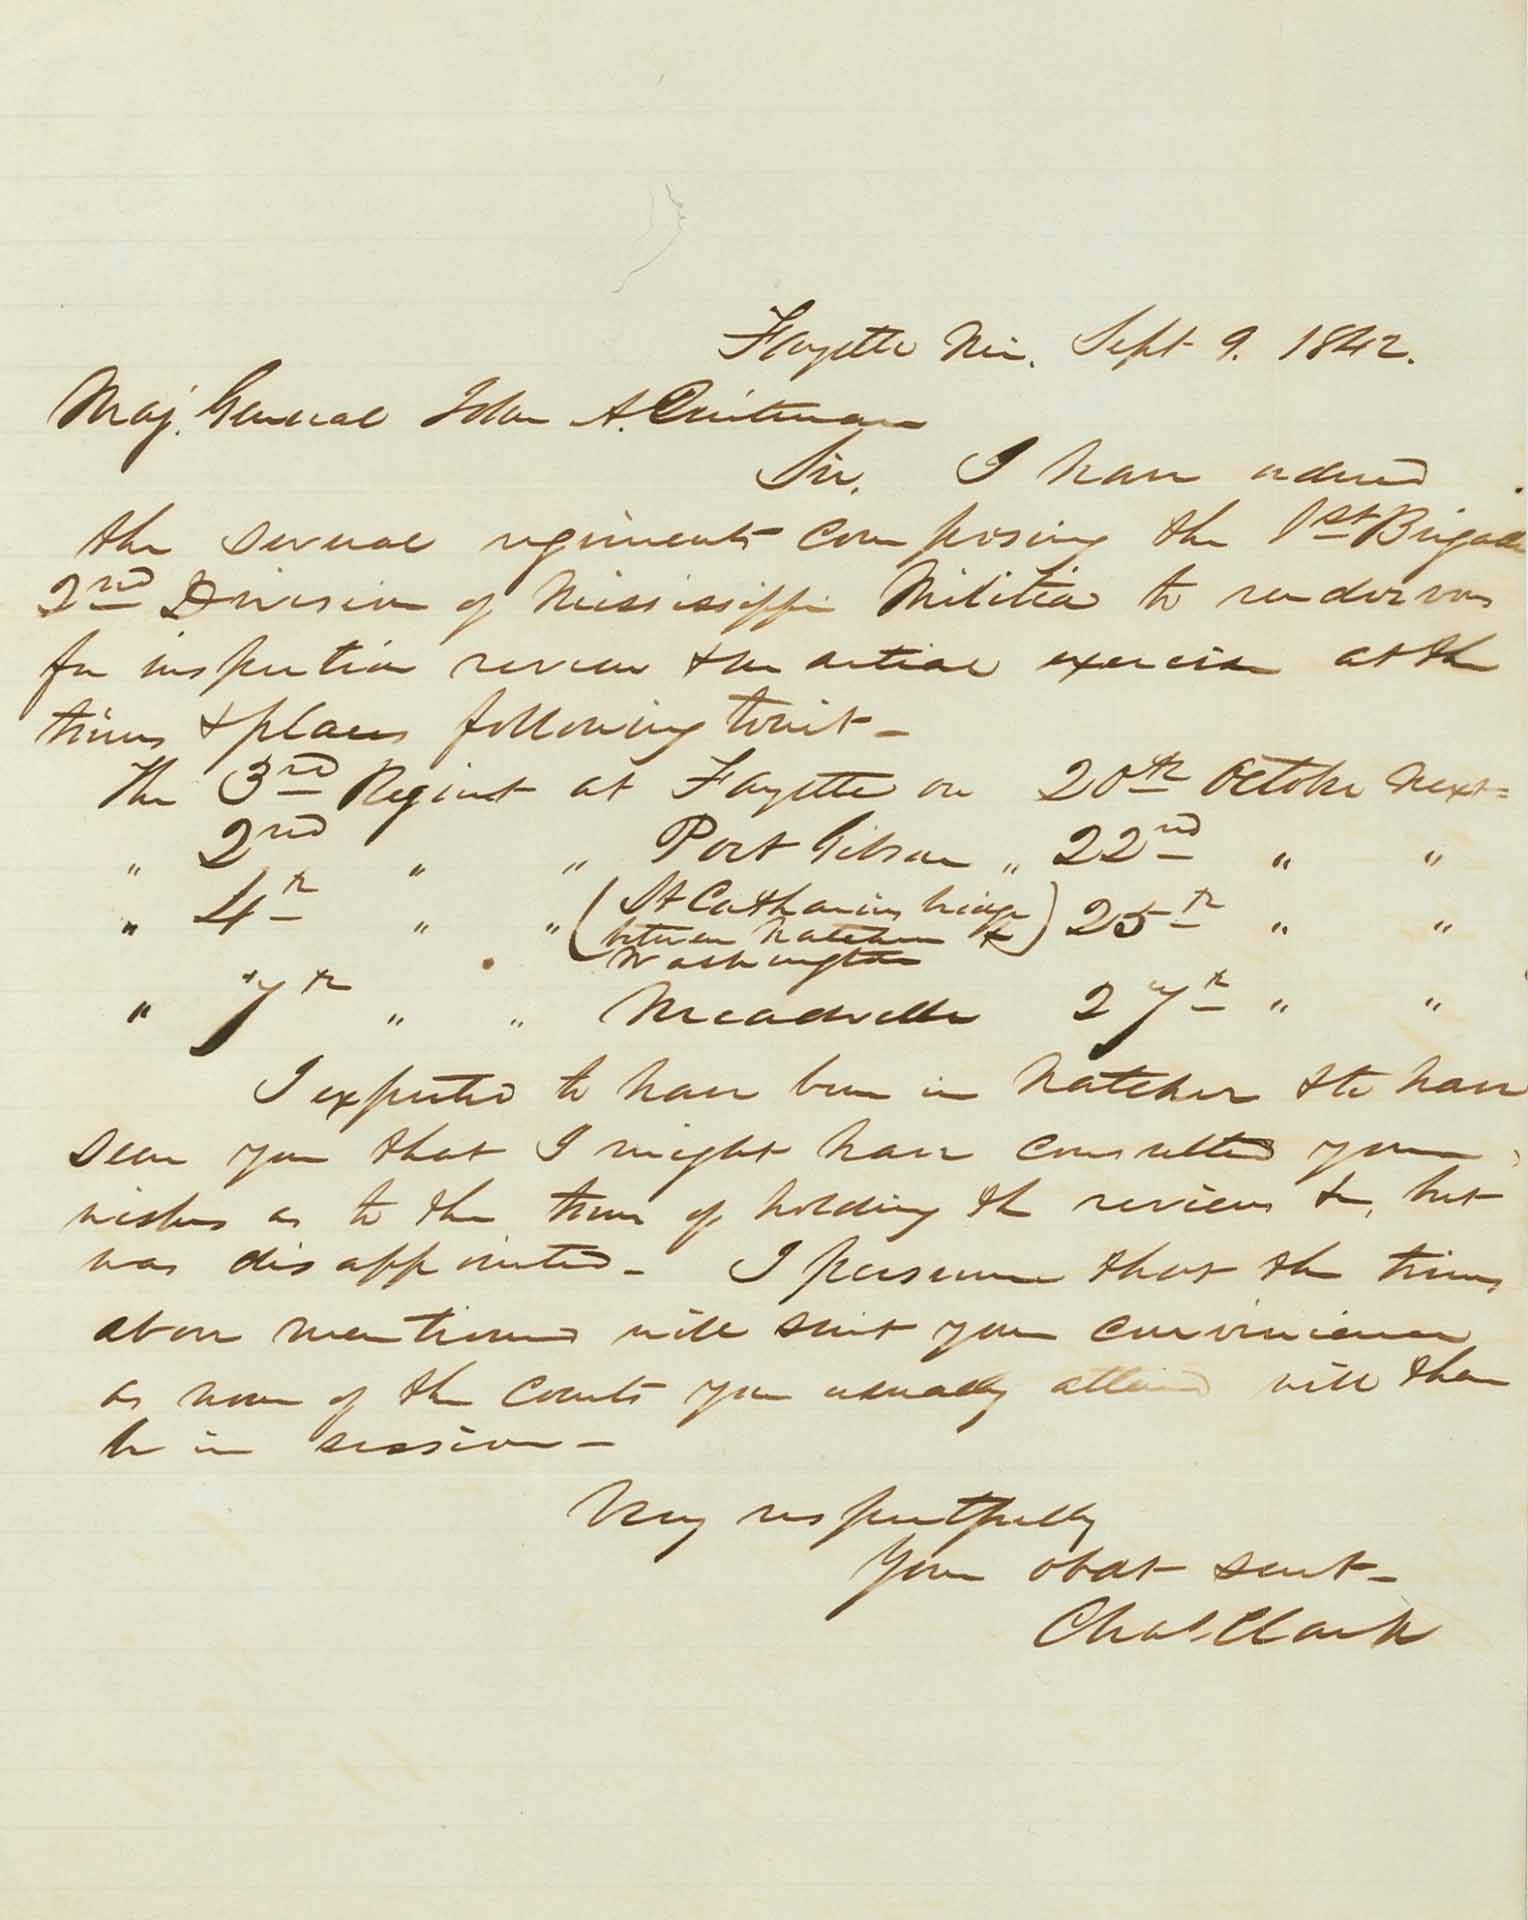 Fayette Mi. Sept 9. 1842.
Maj. General John A. Quitman
Sir. I have ordered
the several regiments composing the 1st Brigade
2nd Division of Mississippi Militia to rendezvous
for inspection review & martial exercise at the
times & places following towit -
The 3rd Regimt at Fayette on 20th October next =
" 2nd " " Port Gibson " 22nd " "
" 4th " " (St Catharines bridge
between Natchez &
Washington) 25th " "
" 7th " " Meadville 27th " "
I expected to have been in Natchez & to have
seen you that I might have consulted your
wishes as to the time of holding the reviews &c, but
was disappointed - I presume that the times
above mentioned will suit your convenience
as none of the Courts you usually attend will then
be in session -
Very respectfully
Your obdt servt -
Chas. Clark